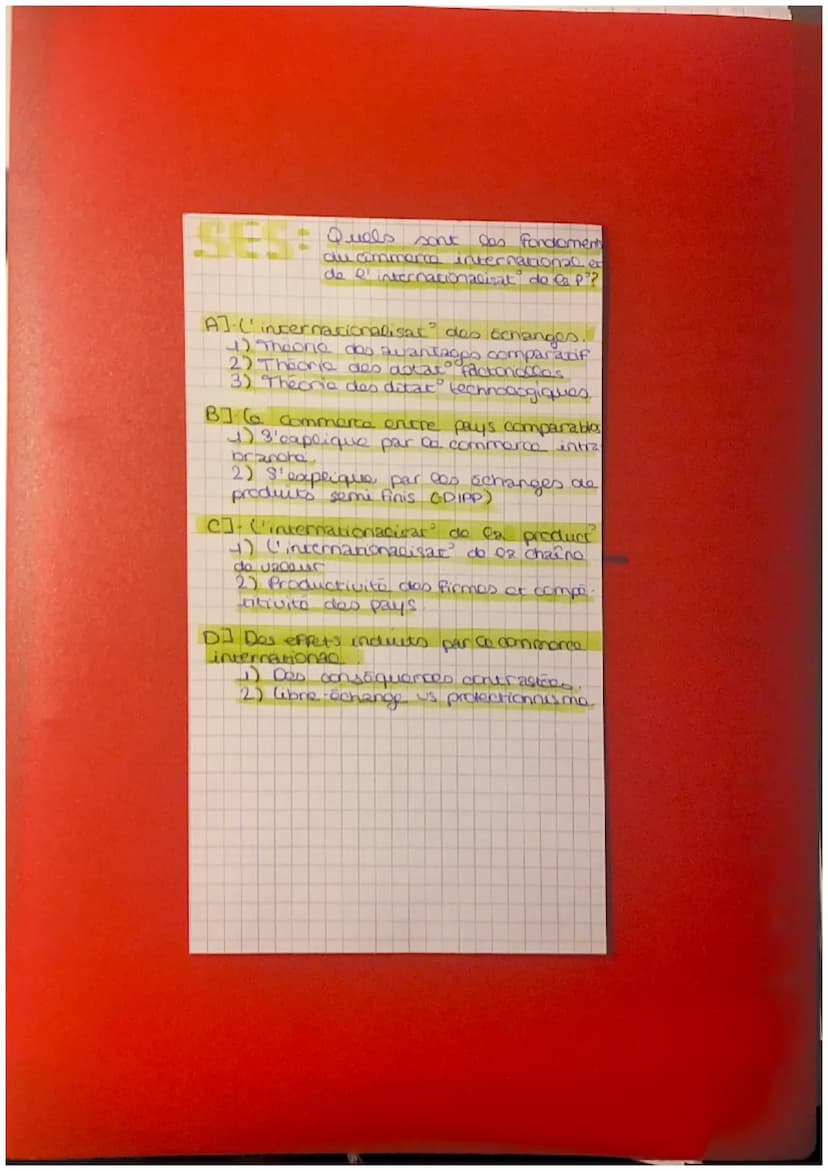 SES: Quels sont les fondements
du commerce international et
de l'internationalisat° de la P°?
A]- L'internationalisat° des échanges.
1) Théorie des avantages comparatif
2) Théorie des dotat° factorielles
3) Théorie des dotat° technologiques.
B] Le commerce entre pays comparables
1) S'explique par le commerce intra
branche
2) S'explique par les échanges de
produits semi finis (DIPP)
C]- L'internationalisat° de la product°
1) L'internationalisat° de la chaîne
de valeur
2) Productivité des firmes et compé-
titivité des pays
D] Des effets induits par le commerce
international
1) Des conséquences contrastées.
2) Libre-échange vs protectionnisme